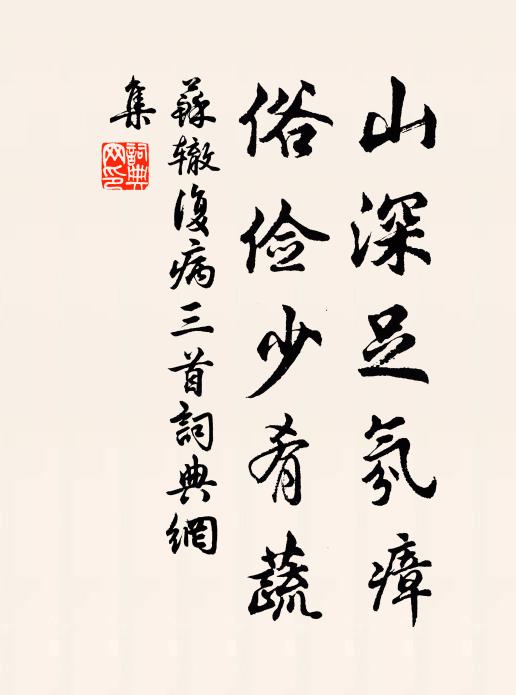 山深足氛瘴
俗俭少肴蔬
蘇辙復病三首詞典網
集
詞典网印